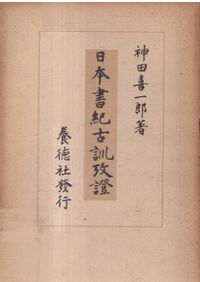 神田喜一郎著
日本書紀古訓攷證
養德社發行